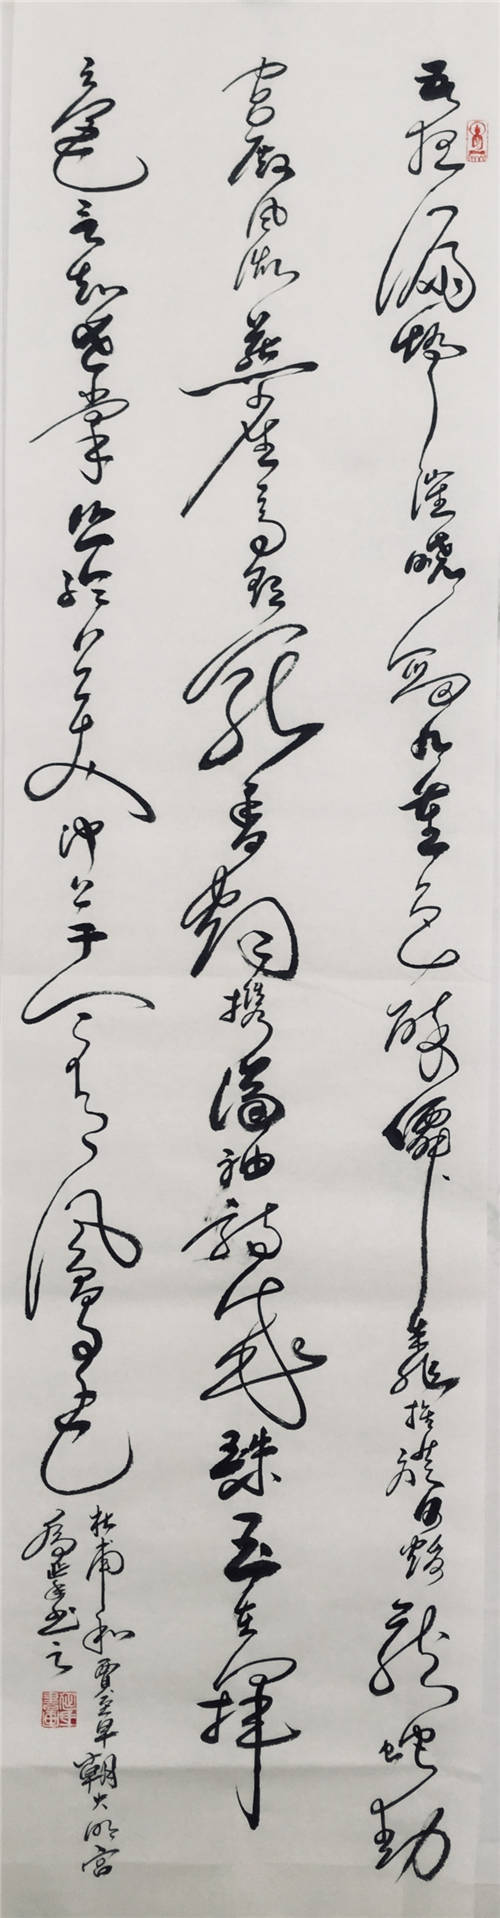 五夜漏聲催曉箭九重色醉僊桃旌旂日暖龍蛇動
宮殿風微燕雀高朝罷香煙攜滿袖詩成珠玉在揮
毫欲知世掌絲綸美池上于今有鳳毛
杜甫和賈至早朝大明宮
書之